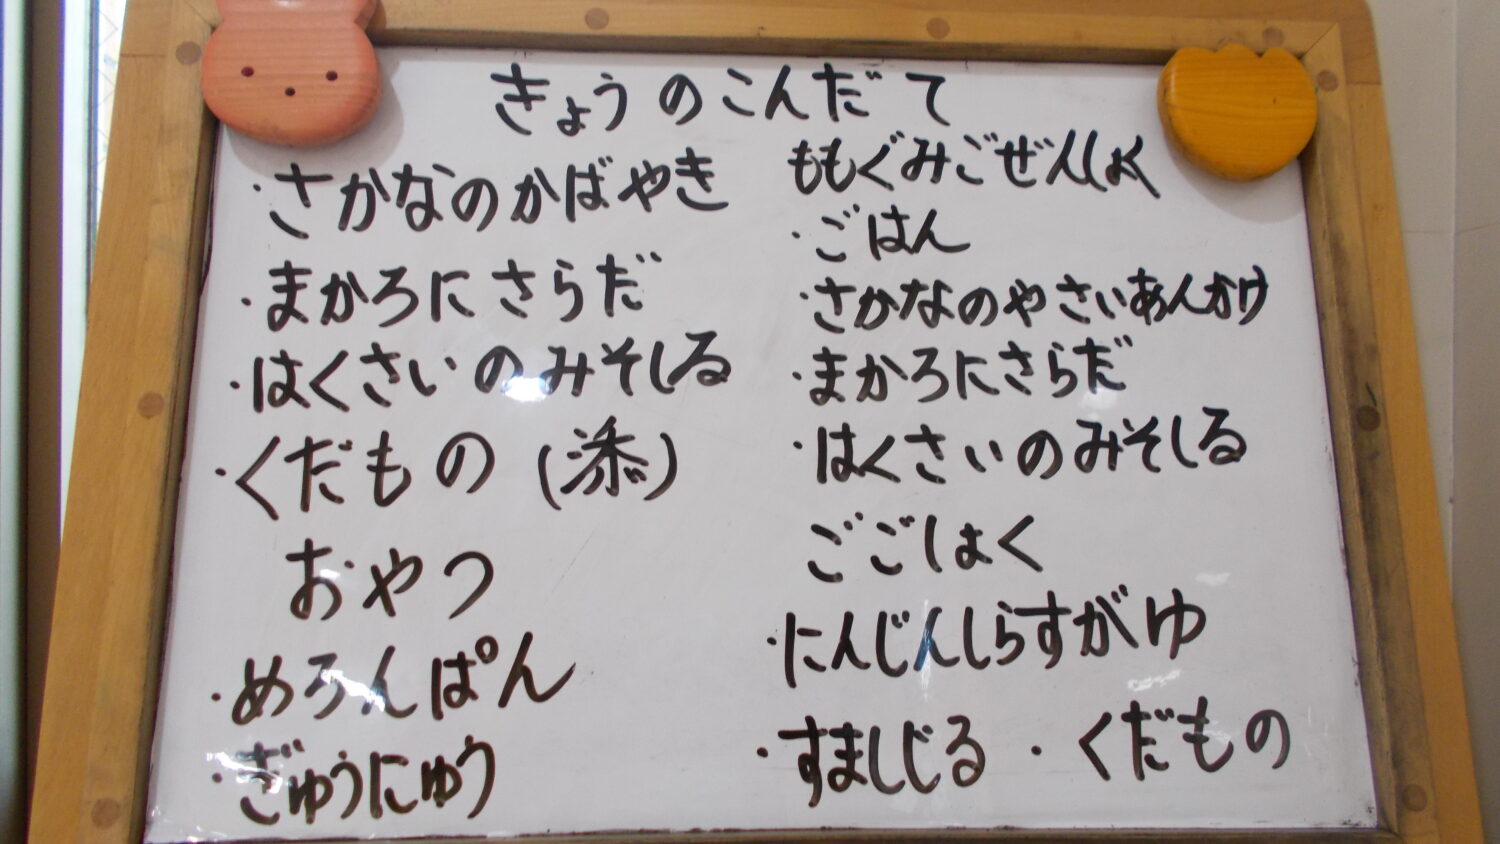 きょうのこんだて
・さかなのかばやき
・まかろにさらだ
・はくさいのみそしる
・くだもの(添)
おやつ
・めろんぱん
・ぎゅうにゅう
ももぐみごぜんしょく
・ごはん
・さかなのやさいあんかけ
・まかろにさらだ
・はくさいのみそしる
ごごしょく
・にんじんしらすがゆ
・すましじる ・くだもの